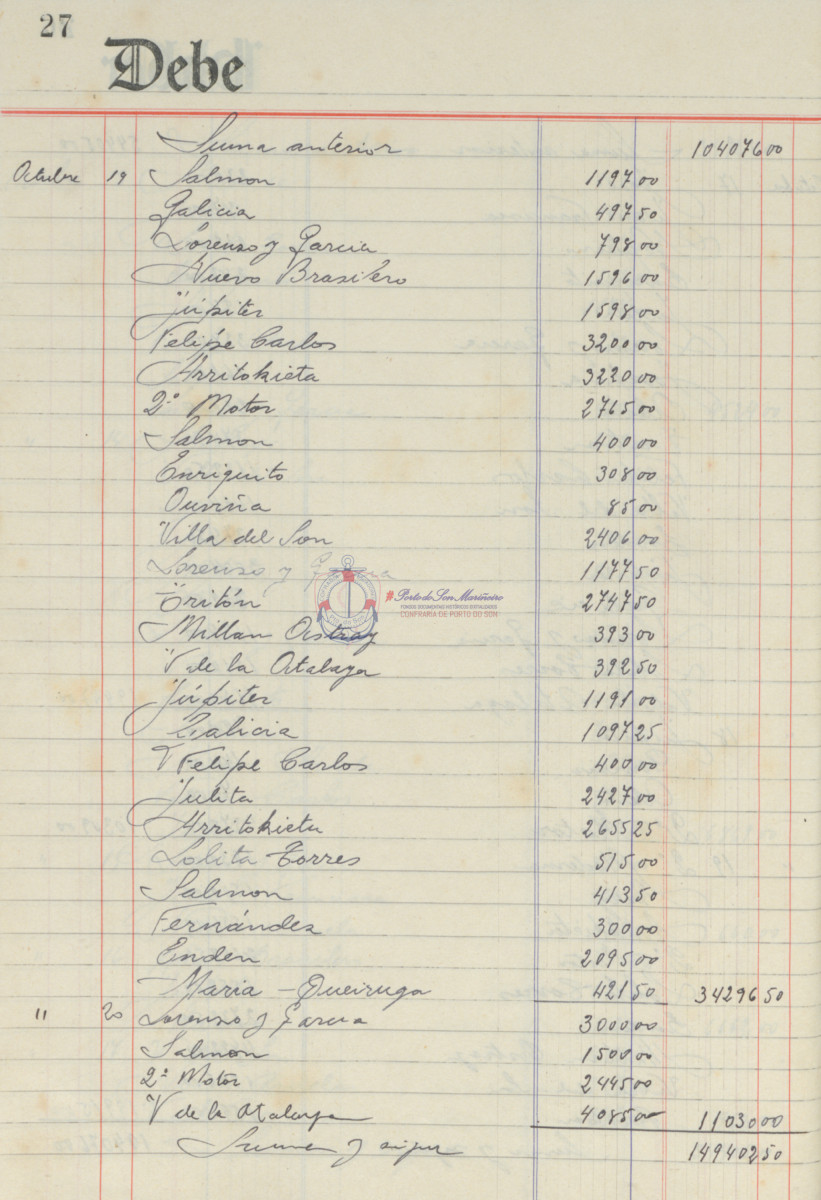 27
Debe
Suma anterior 104076 00
Octubre 19 Salmon 1197 00
Galicia 497 50
Lorenzo y Garcia 798 00
Nuevo Brasilero 1596 00
Júpiter 1598 00
Felipe Carlos 3200 00
Arritokieta 3220 00
2º Motor 2765 00
Salmon 400 00
Enriquito 308 00
Ouviña 85 00
Villa del Son 2406 00
Lorenzo y Garcia 1177 50
Tritón 2747 50
Millan Astray 393 00
V de la Atalaya 392 50
Júpiter 1191 00
Galicia 1097 25
Felipe Carlos 400 00
Julita 2427 00
Arritokieta 2655 25
Lolita Torres 515 00
Salmon 413 50
Fernández 300 00
Enden 2095 00
Maria - Queiruga 421 50 34296 50
" 20 Lorenzo y Garcia 3000 00
Salmon 1500 00
2º Motor 2445 00
V de la Atalaya 4085 00 11030 00
Suma y sigue 149402 50
#Porto do Son Mariñeiro
FONDOS DOCUMENTAIS HISTÓRICOS DIXITALIZADOS
CONFRARIA DE PORTO DO SON